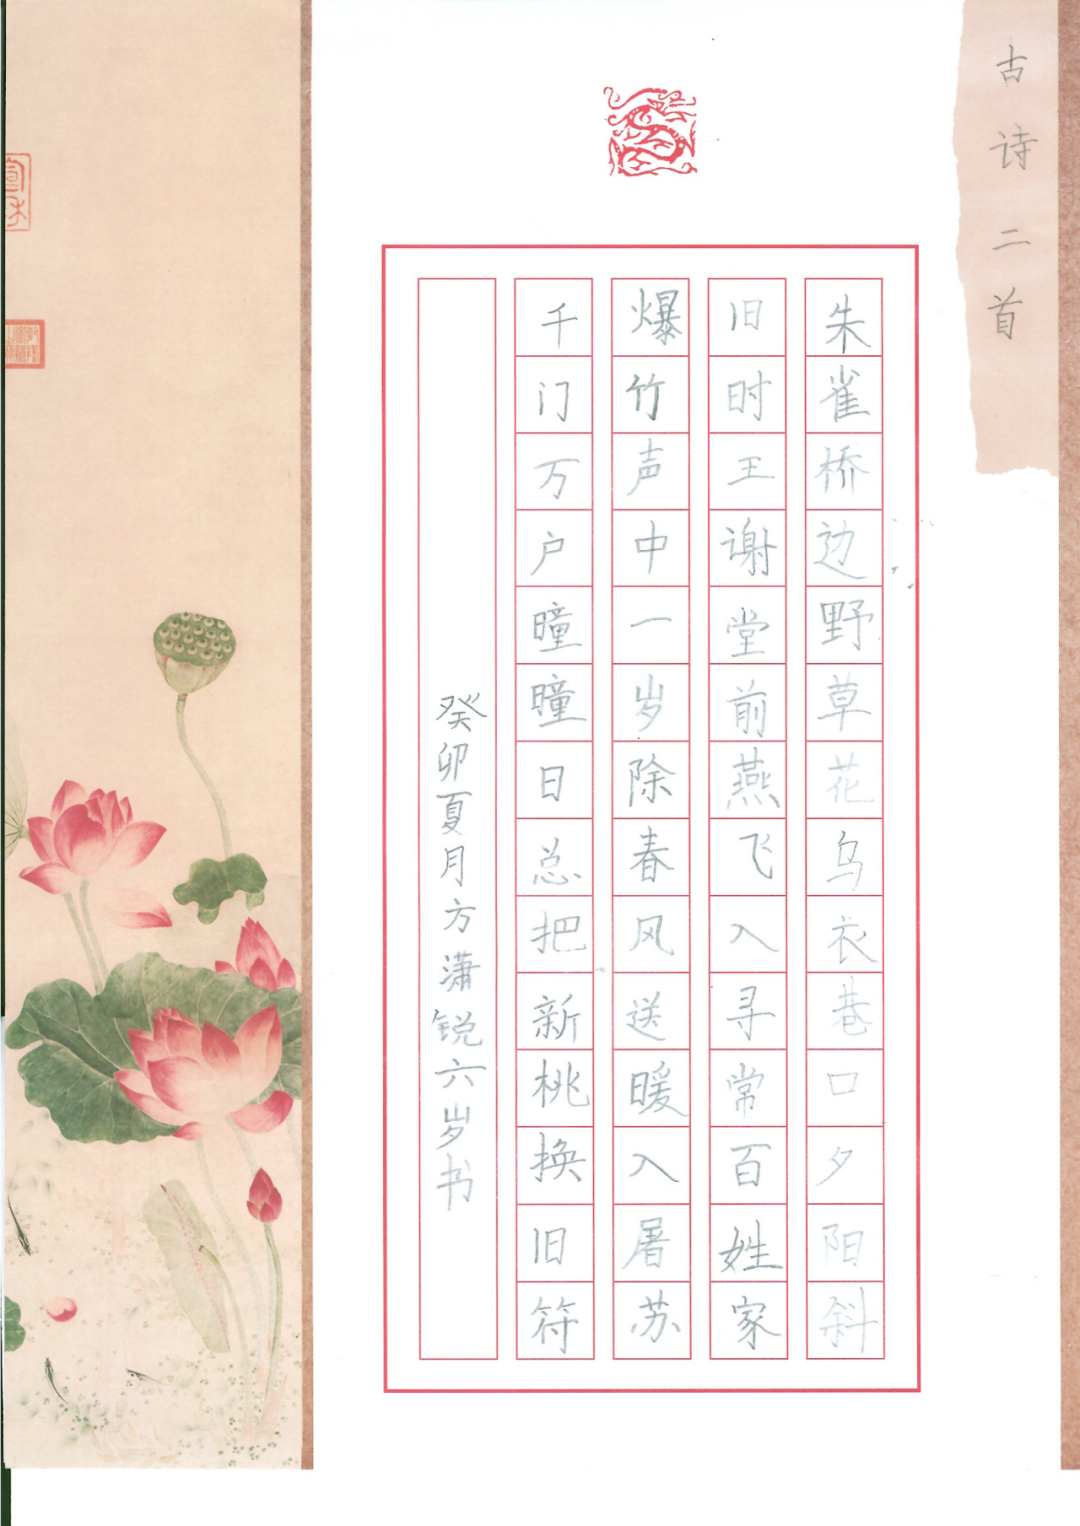 古诗二首
朱雀桥边野草花乌衣巷口夕阳斜
旧时王谢堂前燕飞入寻常百姓家
爆竹声中一岁除春风送暖入屠苏
千门万户曈曈日总把新桃换旧符
癸卯夏月方潇锐六岁书